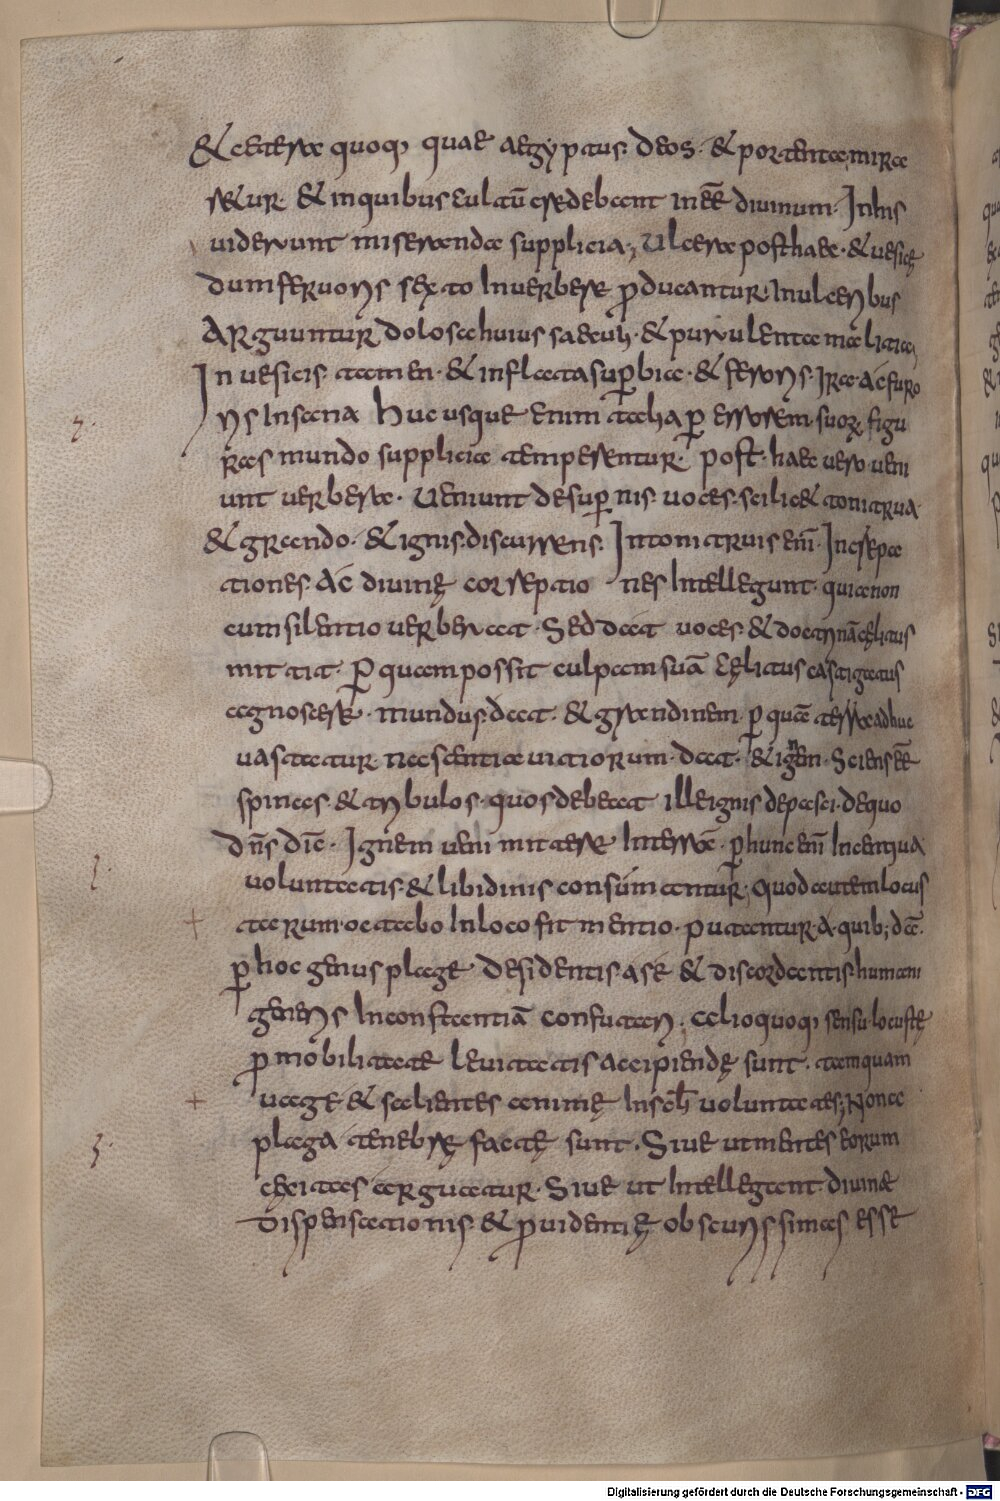 & cetera quoq; quae aegyptus deos. & portenta mira
retur. & inquibus cultū credebant inēē diuinum. Inhis
uiderunt miseranda supplicia; Ulcera posthaec. & uesicę
cum feruoris sexto Inuerbere p̱ducantur. Inulceribus
Arguuntur dolosa huius saeculi. & purulenta malitia;
In uesicis tamen. & inflata sup̱bia. & feruoris. Irae. ac furo
ris Insania huc usque enim talia p̱ errorem suoꝝ figu
ras mundo supplicia temperentur. post. haec uero ueni
unt uerbera. Ueniunt desup̱nis uoces. scilic& tonitrua
& grando. & ignis. discurrens. In tonitruis em̄. Increpa
tiones ac diuinę correptio nes Intellegunt. quia non
cum silentio uerberat. Sed dat uoces. & doctrinā cęlitus
mittit. p̱ quam possit culpam suā cęlitus castigatus
agnoscere. mundus. dat. & grandinem. p̱ quā terrae adhuc
uastatur. nascentia uitiorum. dat. & ignem. Sciens ēē
spinas. & tribulos. quos debeat ille ignis depasci. de quo
dn̄s dic̄. Ignem ueni mittere In terrā. p̱ hunc em̄ Incentiua
uoluntatis. & libidinis consumentur. Quod autem locus
tarum. octabo In loco fit mentio. putantur. A. quib; dā.
p̱ hoc genus plage. desidentis ase & discordantis humani
generis Inconstantiā confutari. Alio quoq; sensu. locustę
p̱ mobilitate leuitatis accipiendę sunt. tamquam
uage & salientes animę In sc̄li uoluntates; Nona
plaga tenebrę factę sunt. Siue ut mentes eorum
cęcitas arguatur. Siue ut Intellegant diuinae
dispensationis. & p̱uidentię obscurissimas esse
Digitalisierung gefördert durch die Deutsche Forschungsgemeinschaft - DFG